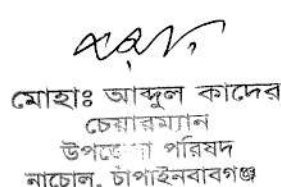 মোহাঃ আব্দুল কাদের
চেয়ারম্যান
উপজেলা পরিষদ
নাচোল, চাঁপাইনবাবগঞ্জ